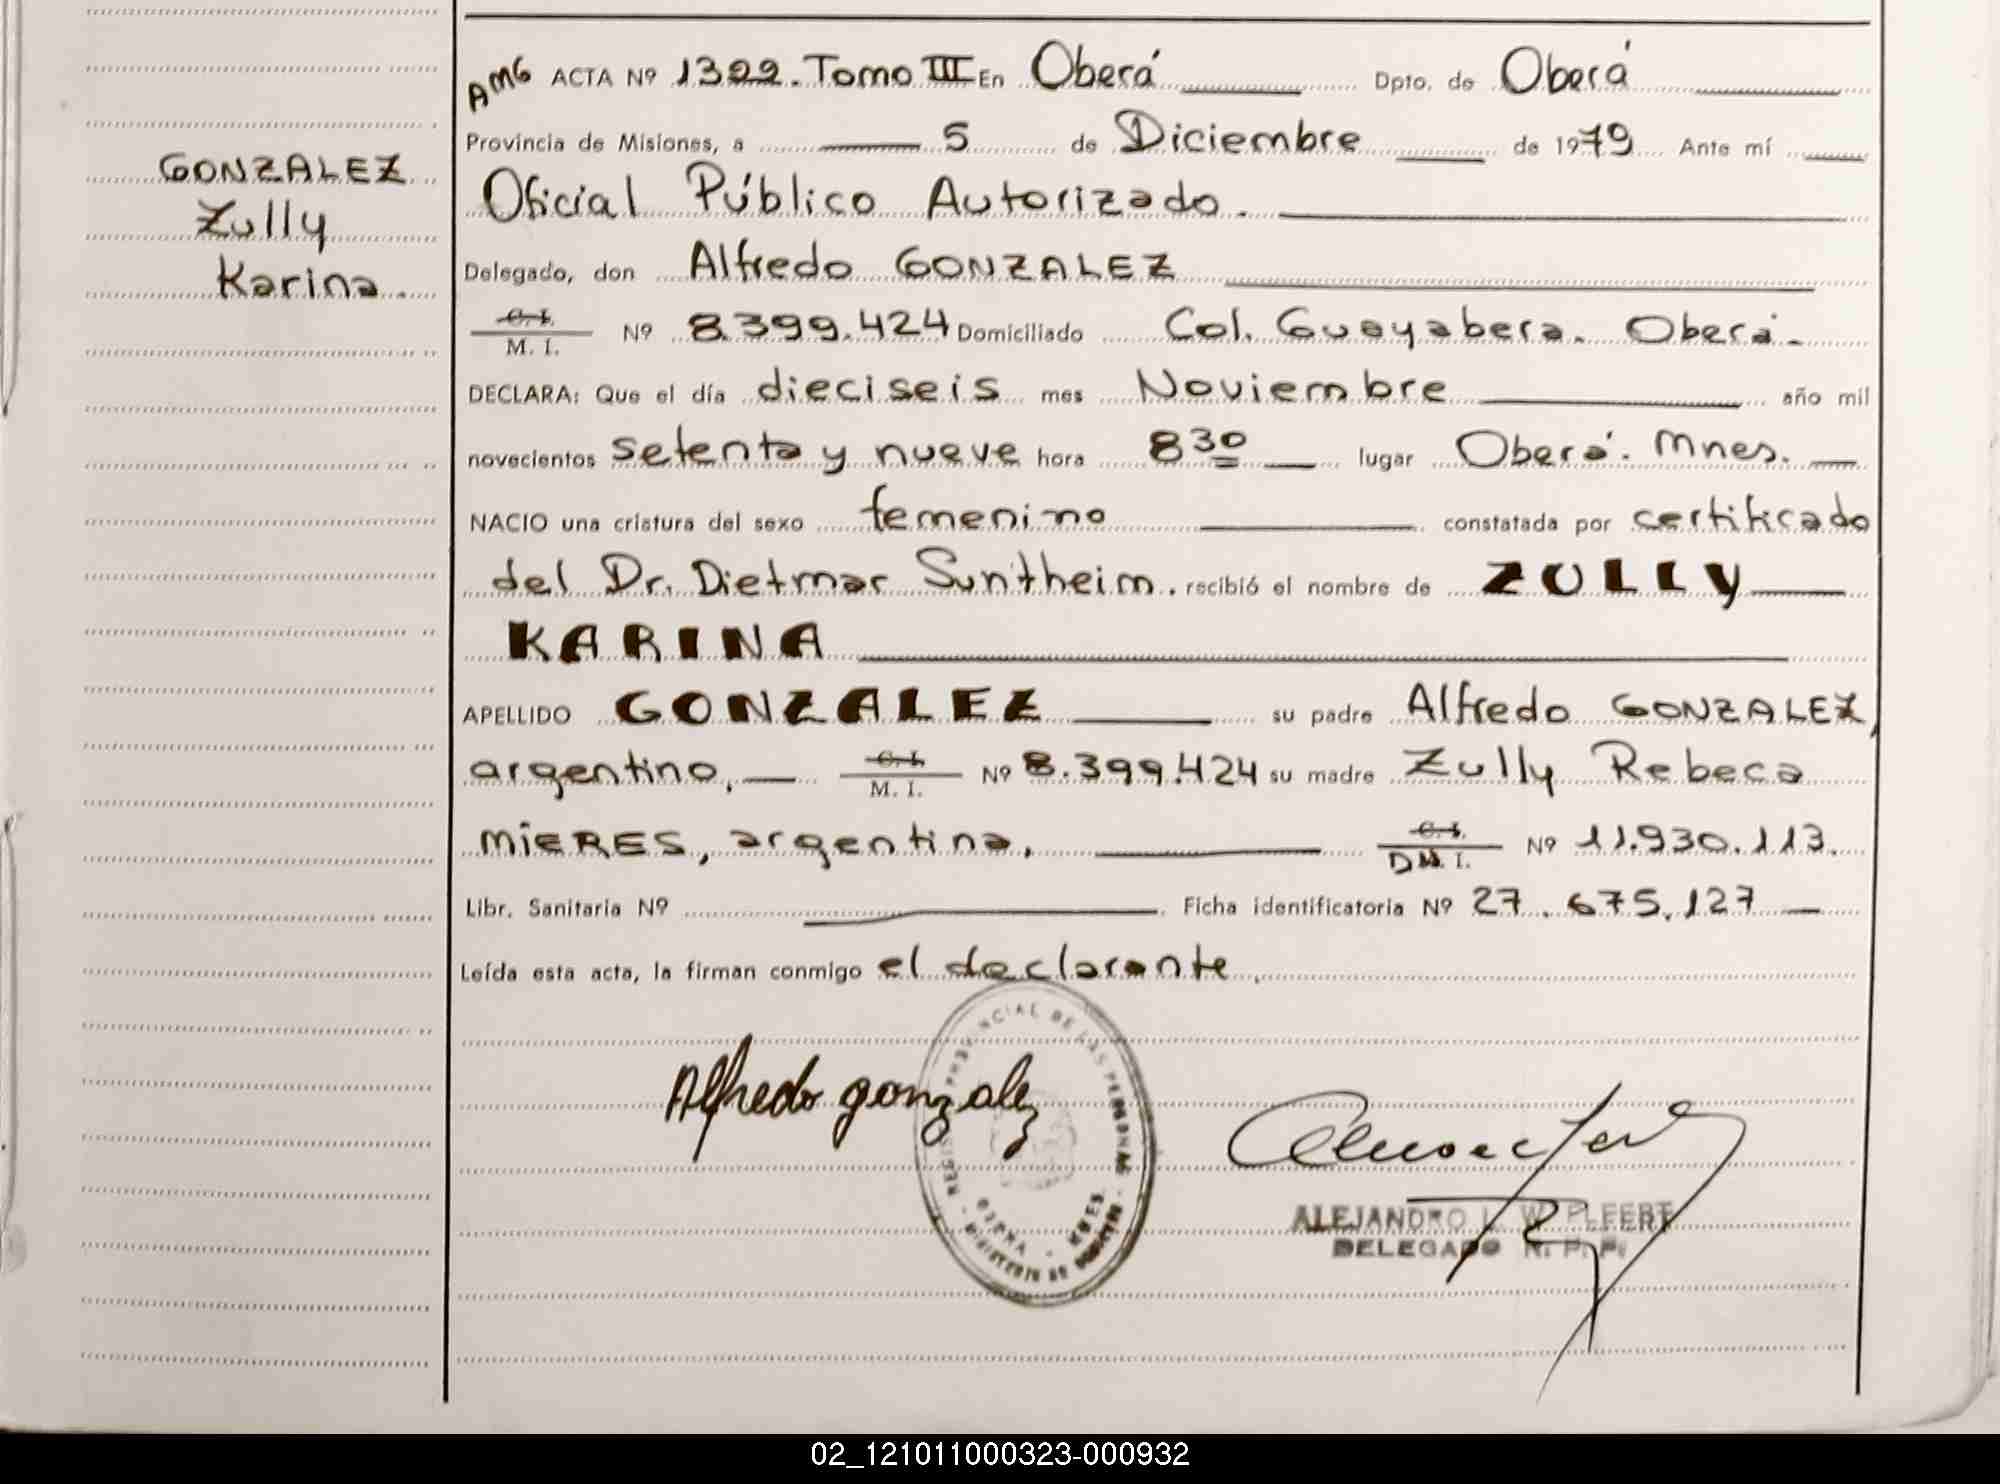 GONZALEZ
Zully
Karina.
AMG ACTA Nº 1322. Tomo III En Oberá Dpto. de Oberá
Provincia de Misiones, a 5 de Diciembre de 1979 Ante mí
Oficial Público Autorizado.
Delegado, don Alfredo GONZALEZ
C. I.
M. I. Nº 8.399.424 Domiciliado Col. Guayabera. Oberá.
DECLARA: Que el día dieciseis mes Noviembre año mil
novecientos setenta y nueve hora 8 30 lugar Oberá. Mnes.
NACIO una criatura del sexo femenino constatada por certificado
del Dr. Dietmar Suntheim. recibió el nombre de ZULLY
KARINA
APELLIDO GONZALEZ su padre Alfredo GONZALEZ,
argentino, C. I. M. I. Nº 8.399.424 su madre Zully Rebeca
MiERES, argentina, C. I. D N. I. Nº 11.930.113.
Libr. Sanitaria Nº Ficha identificatoria Nº 27.675.127
Leída esta acta, la firman conmigo el declarante.
Alfredo gonzalez
PROVINCIAL DE LAS PERSONAS
MNES.
ALEJANDRO L. W. PLEERT
DELEGADO R. P. P.
02_121011000323-000932